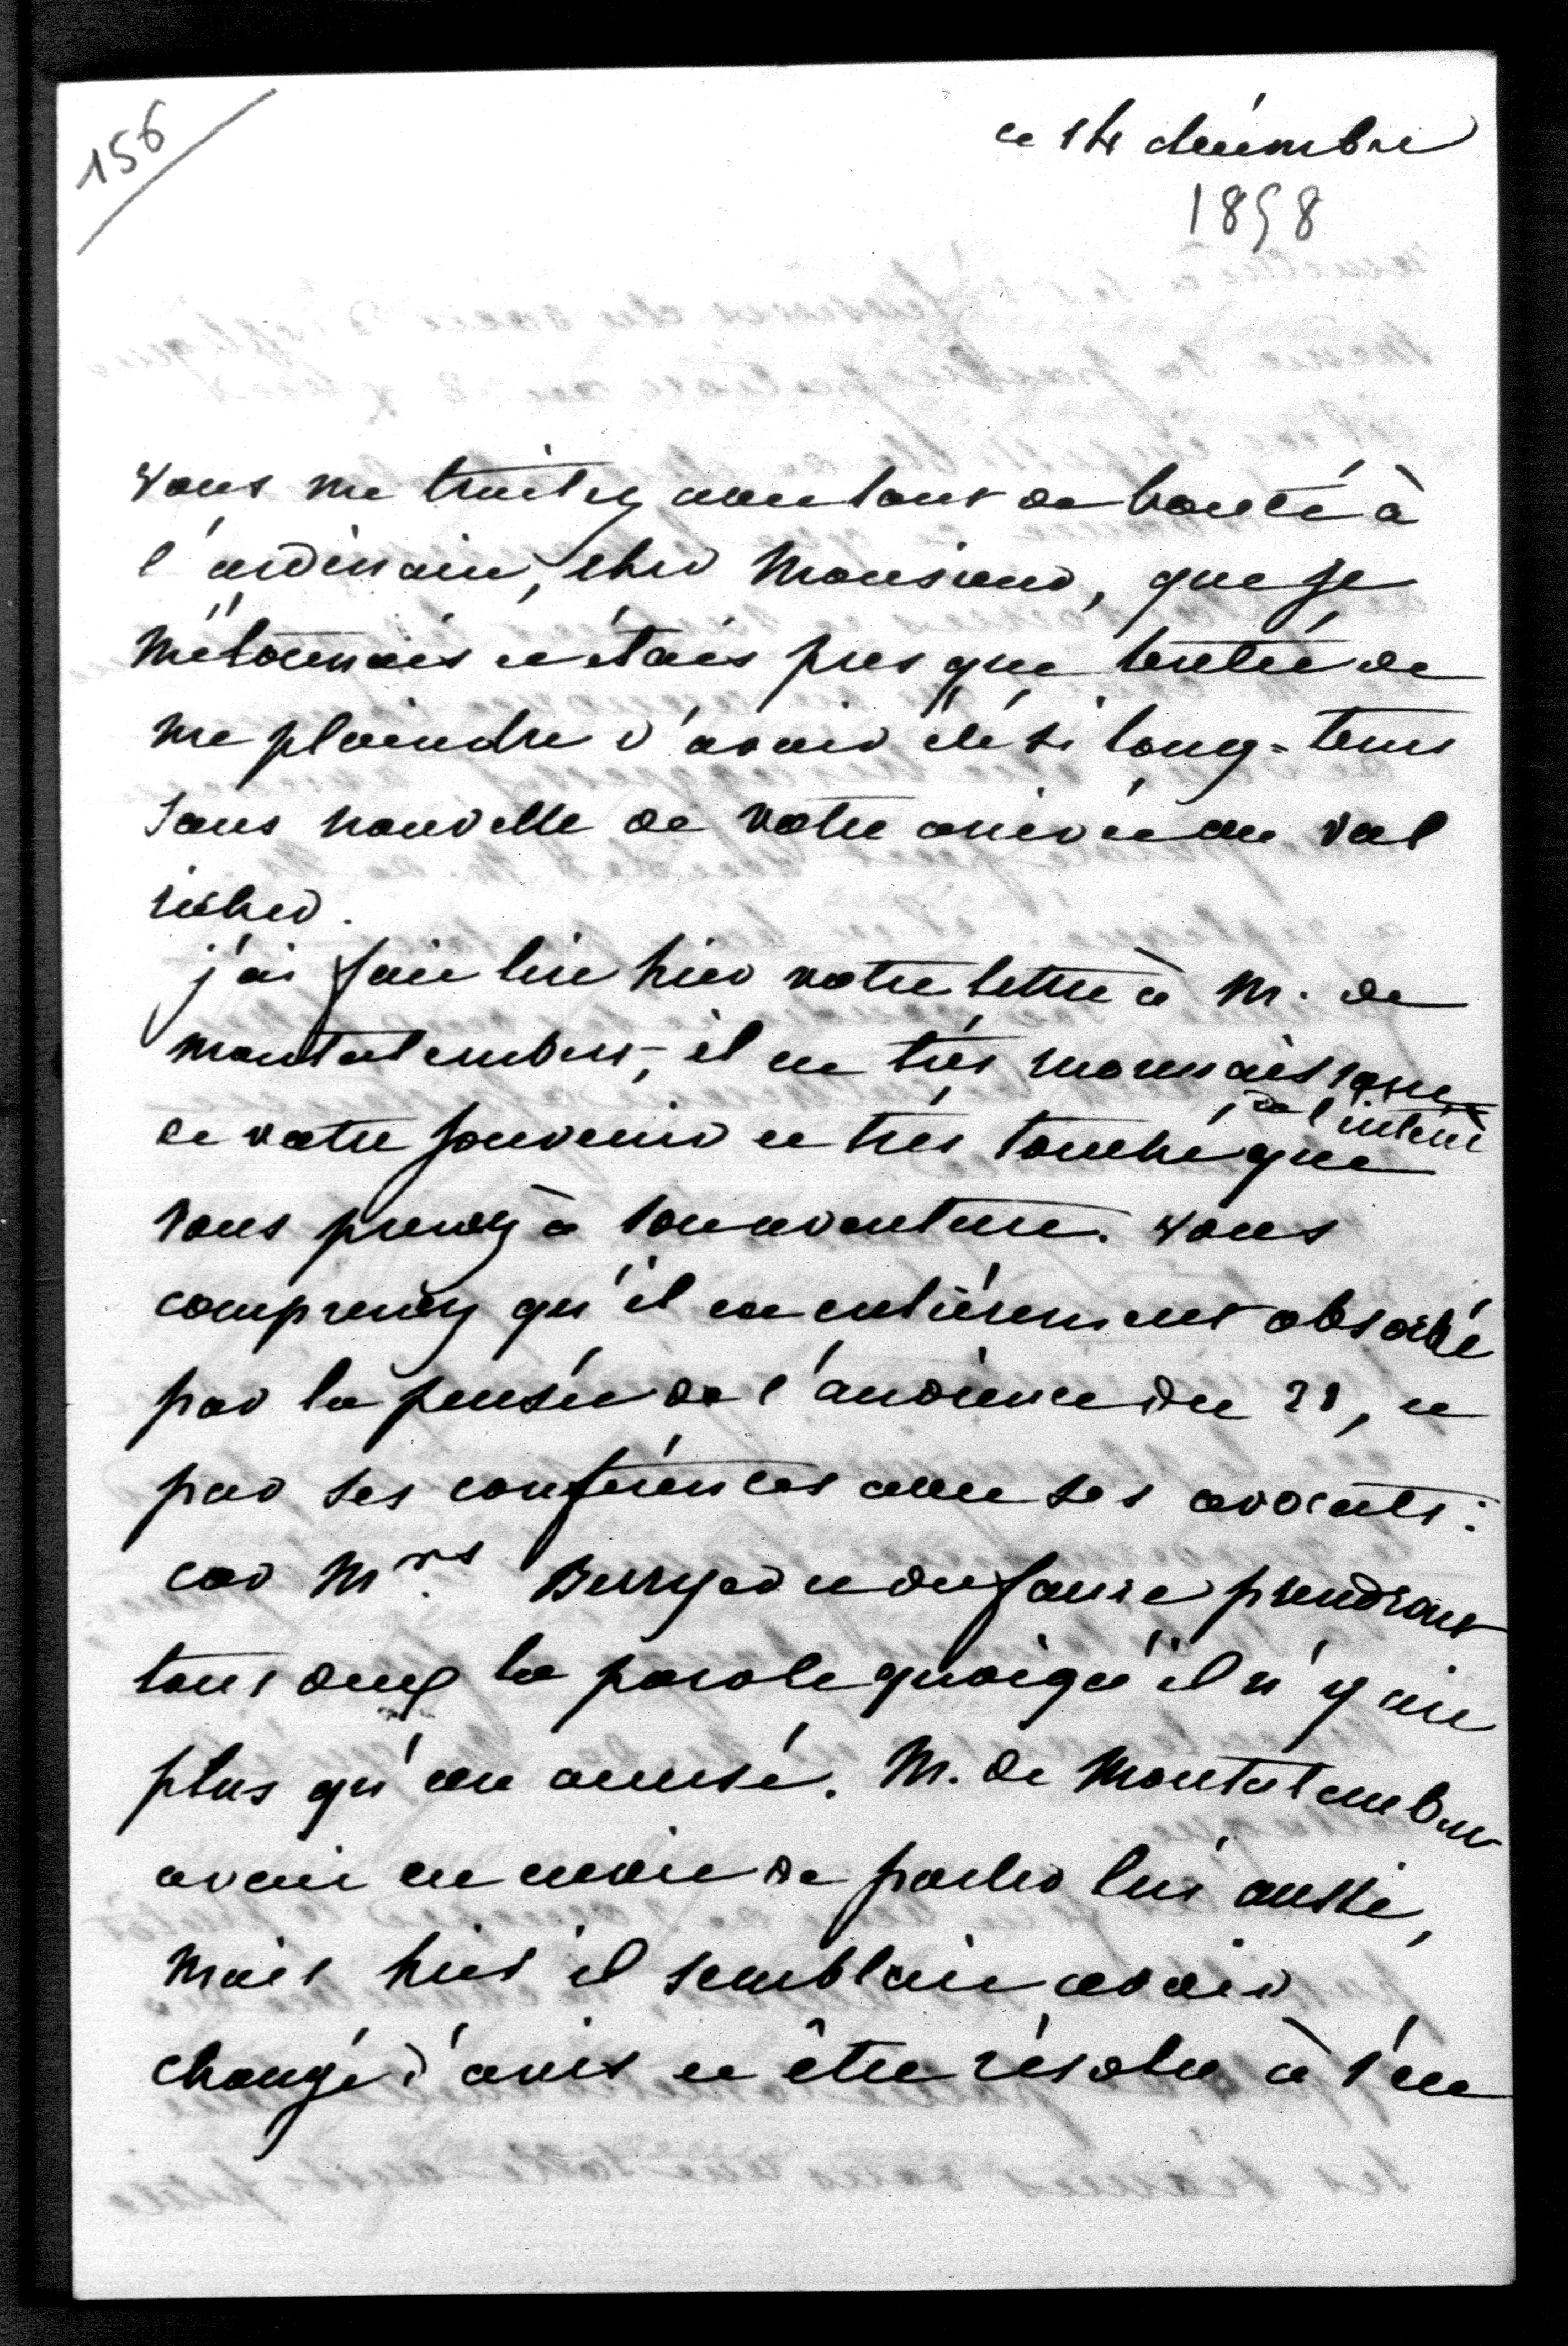 156
ce 14 décembre
1858
Vous me traitez avec tant de bonté à
l'ordinaire, cher Monsieur, que je
m'étonnais et étais presque tentée de
me plaindre d'avoir été si long-tems
sans nouvelle de votre arrivée au Val
richer.
j'ai fait lire hier votre lettre à M. de
montalembert, il est très reconnaissant
de votre souvenir et très touché de l'intérêt que
vous prenez à son aventure. Vous
comprenez qu'il est entièrement absorbé
par la pensée de l'audience du 21, et
par ses conférences avec ses avocats :
car Mrs. Berryer et dufaure prendront
tous deux la parole quoiqu'il n'y ait
plus qu'un accusé. M. de Montalembert
avait eu envie de parler lui aussi,
mais hier il semblait avoir
changé d'avis et être résolu à s'en